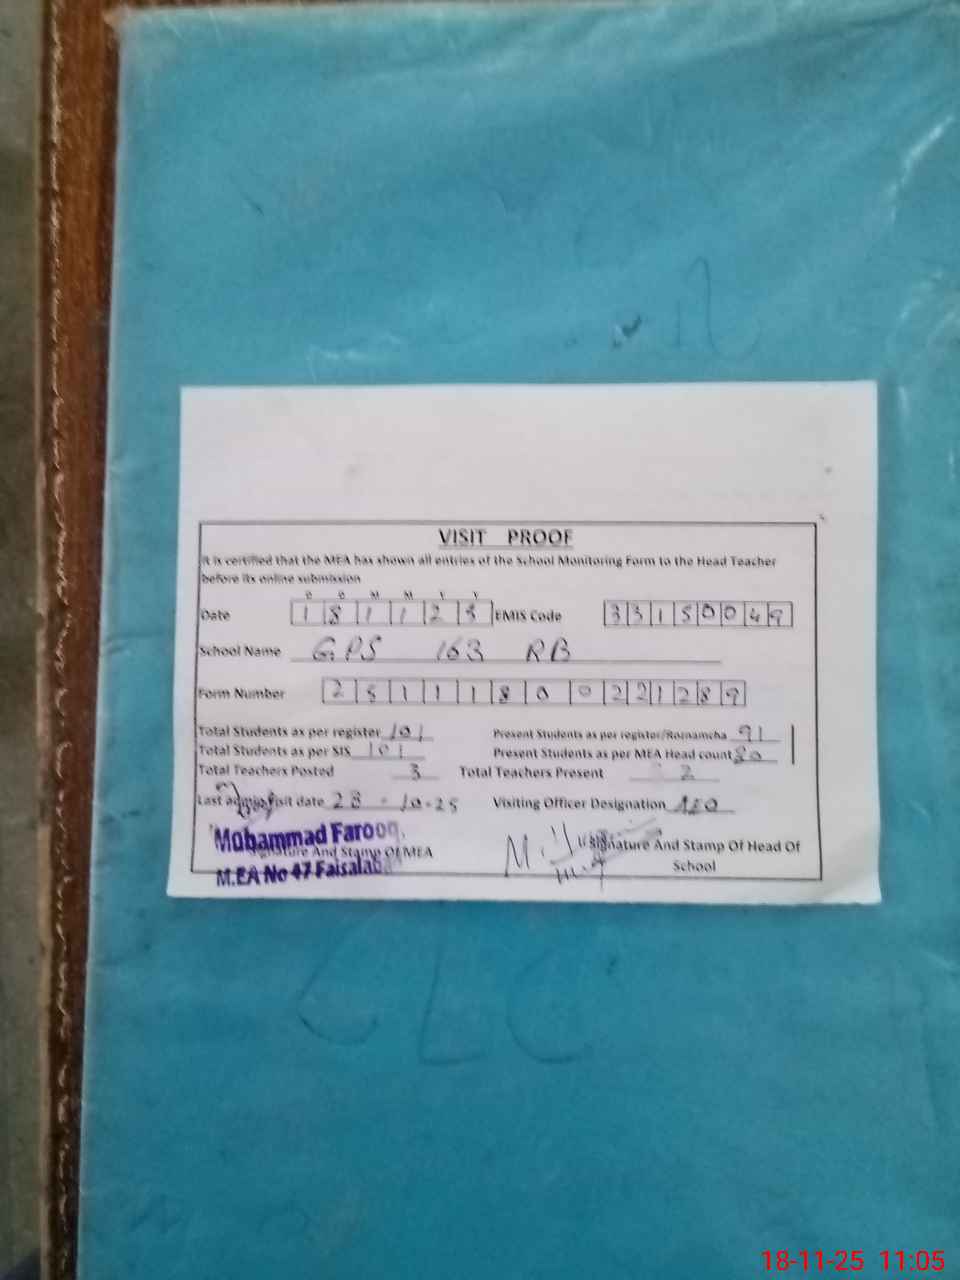 VISIT PROOF
It is certified that the MEA has shown all entries of the School Monitoring Form to the Head Teacher
before its online submission
D D M M Y Y
Date 1 8 1 1 2 5 EMIS Code 3 3 1 5 0 0 4 9
School Name GPS 163 RB
Form Number 2 5 1 1 1 8 0 0 2 2 1 2 8 9
Total Students as per register 101 Present Students as per register/Roznamcha 91
Total Students as per SIS 101 Present Students as per MEA Head count 80
Total Teachers Posted 3 Total Teachers Present 2
Last visit date 28-10-25 Visiting Officer Designation AEO
Muhammad Farooq
Signature And Stamp Of MEA Signature And Stamp Of Head Of
School
M.EA No 47 Faisalabad
CLC
18-11-25 11:05